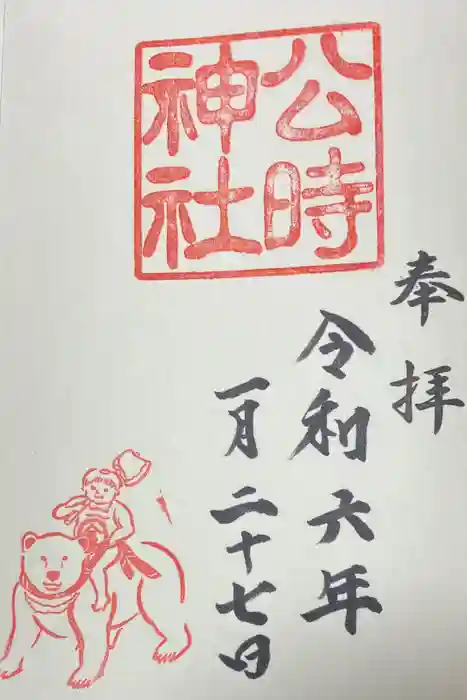 奉拝
公時
神社
令和六年
一月二十七日